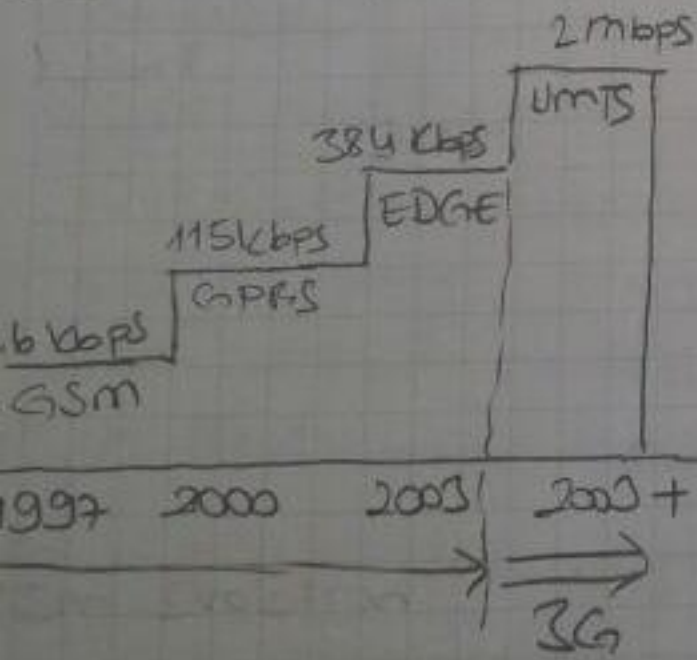 2mbps
UMTS
384 kbps
EDGE
115kbps
GPRS
.6 kbps
GSM
1997 2000 2003 2003+
3G